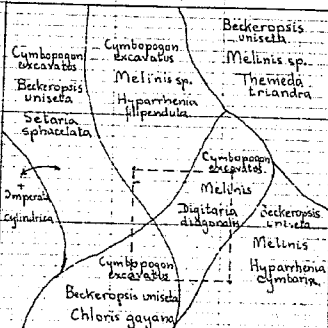 Cymbopogon
excavatus
Beckeropsis
uniseta
Setaria
sphacelata
Cymbopogon
excavatus
Melinis sp.
Hyparrhenia
filipendula
Beckeropsis
uniseta
Melinis sp.
Themeda
triandra
+
Imperata
cylindrica
Cymbopogon
excavatus
Melinis
Digitaria
diagonalis
Beckeropsis
uniseta
Melinis
Hyparrhenia
cymbaria
Cymbopogon
excavatus
Beckeropsis uniseta
Chloris gayana